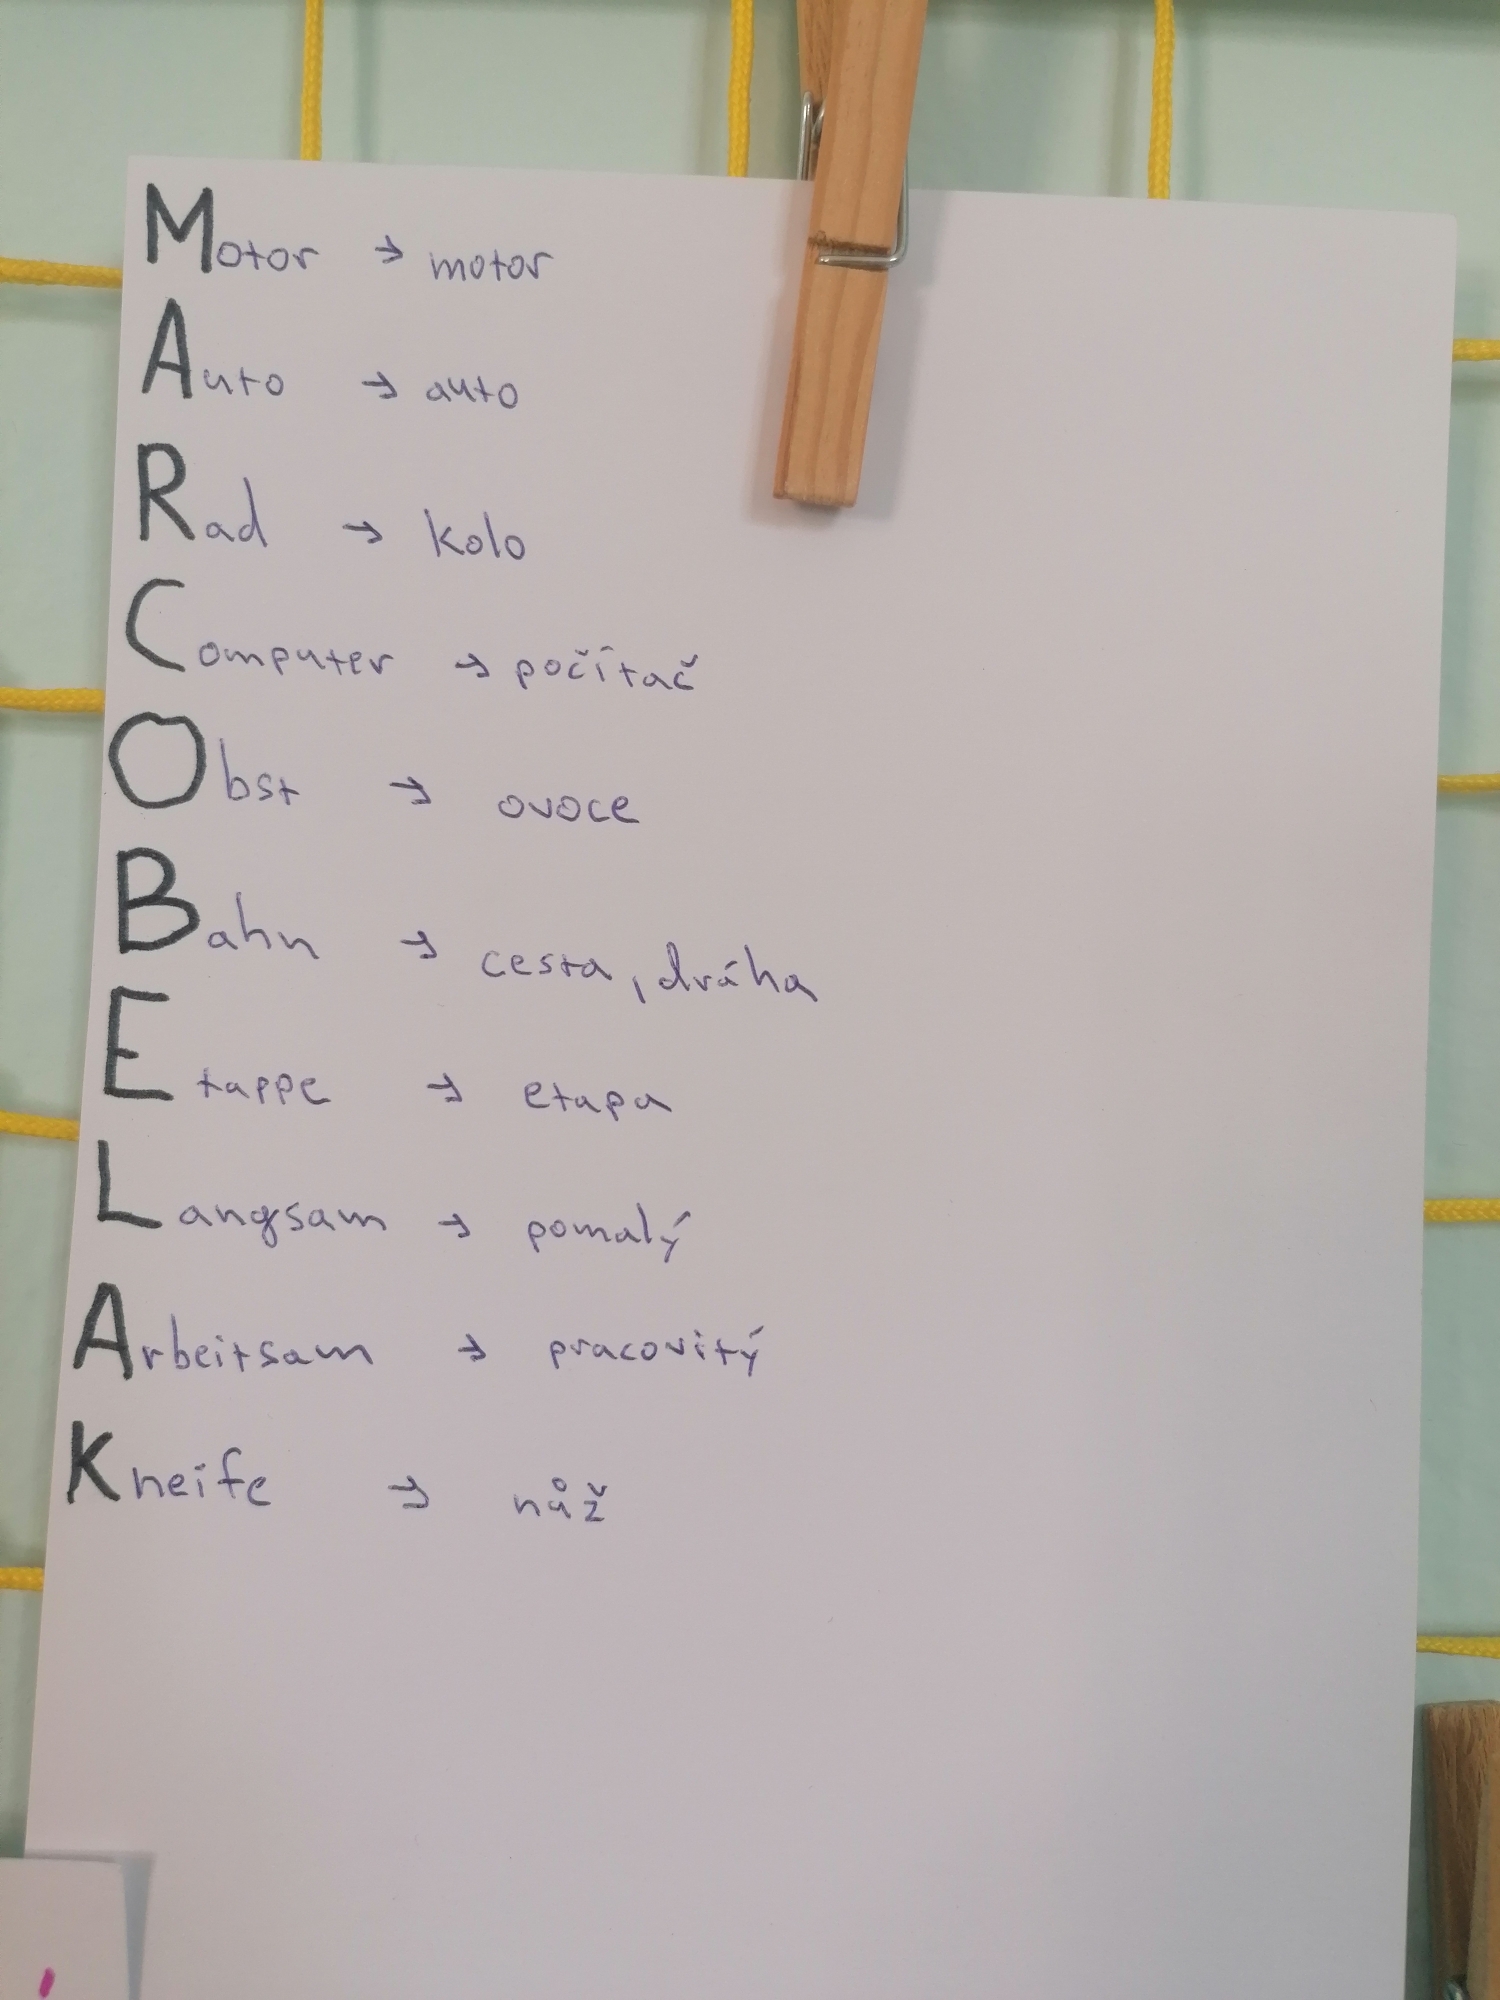 Motor → motor
Auto → auto
Rad → kolo
Computer → počítač
Obst → ovoce
Bahn → cesta, dráha
Etappe → etapa
Langsam → pomalý
Arbeitsam → pracovitý
Kneife → nůž